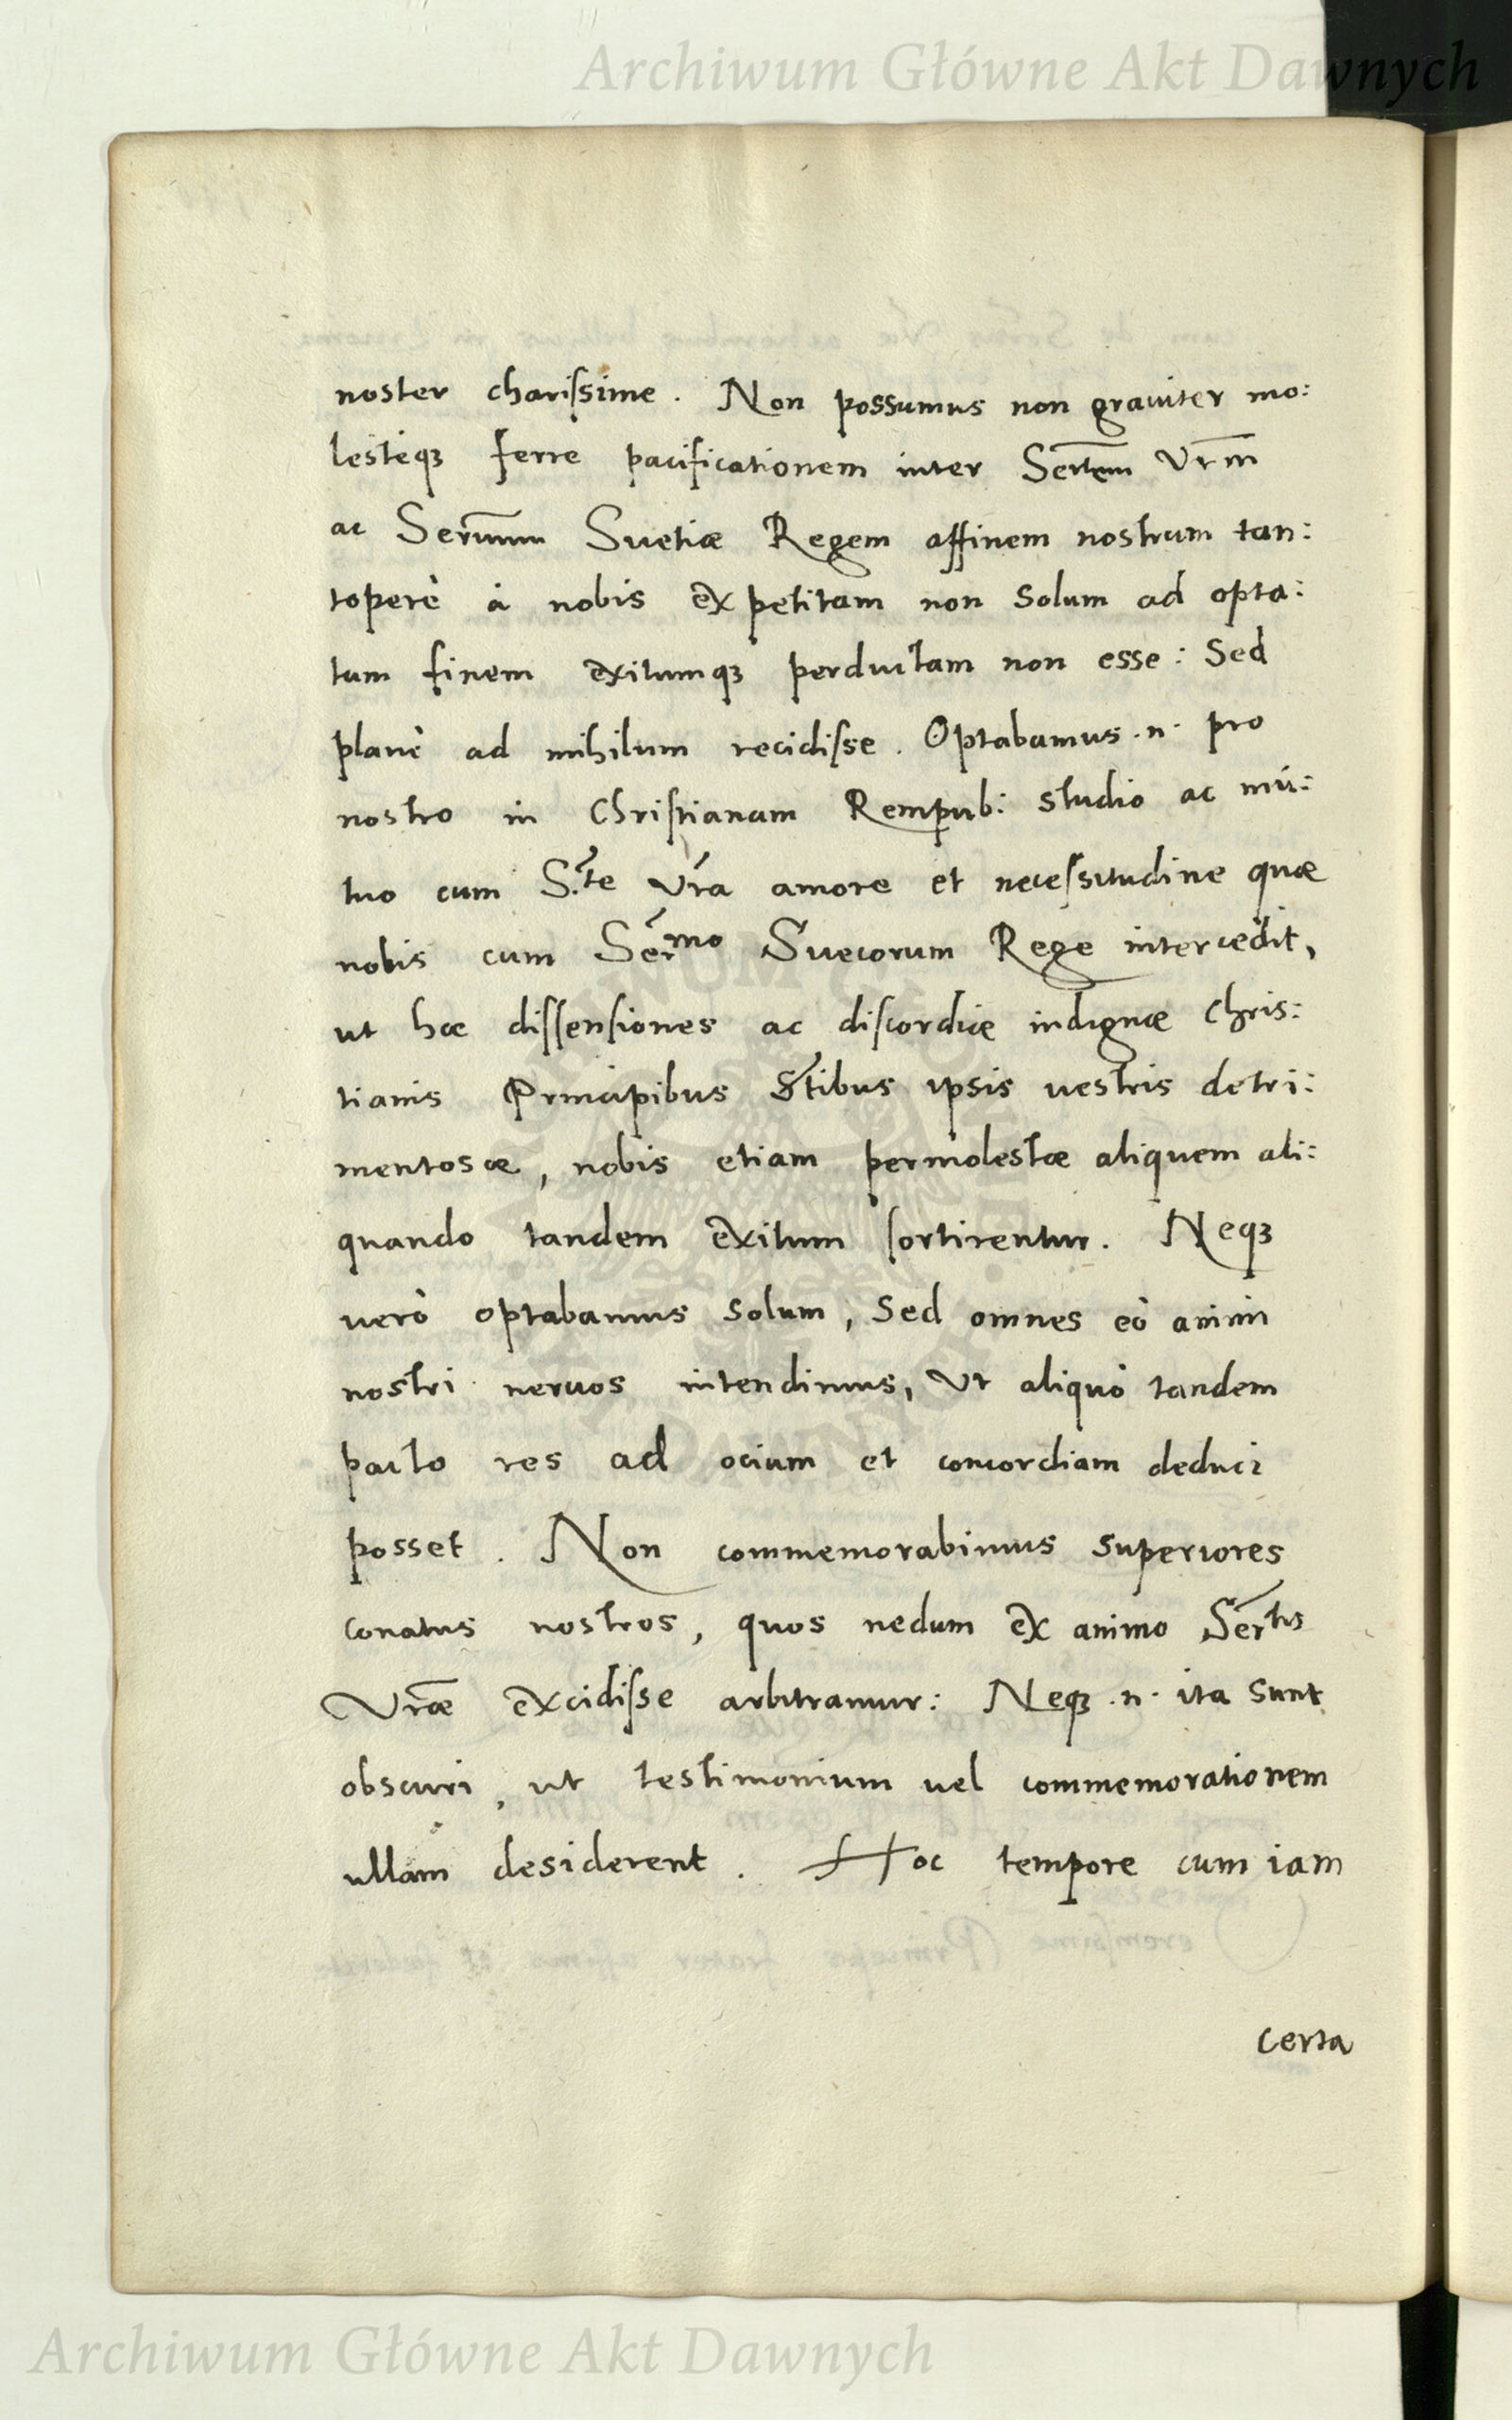 Archiwum Główne Akt Dawnych
noster charissime. Non possumus non grauiter mo:
lesteqꝫ ferre pacificationem inter Sertem Vrm
ac Sermum Suetiæ Regem affinem nostrum tan:
topere à nobis expetitam non solum ad opta:
tum finem exitumqꝫ perductam non esse: Sed
planè ad nihilum recidisse. Optabamus .n. pro
nostro in Christianam Rempub: studio ac mú:
tuo cum S.te Vra amore et necessitudine quæ
nobis cum Sermo Suecorum Rege intercedit,
ut hæ dissensiones ac discordiæ indignæ Chris:
tianis Principibus Stibus ipsis uestris detri:
mentosæ, nobis etiam permolestæ aliquem ali:
quando tandem exitum sortirentur. Neqꝫ
uerò optabamus solum, sed omnes eò animi
nostri neruos intendimus, Vt aliquo tandem
pacto res ad ocium et concordiam deduci
posset. Non commemorabimus superiores
conatus nostros, quos nedum ex animo Sertis
Vræ excidisse arbitramur: Neqꝫ .n. ita sunt
obscuri, ut testimonium uel commemorationem
ullam desiderent. Hoc tempore cum iam
certa
Archiwum Główne Akt Dawnych